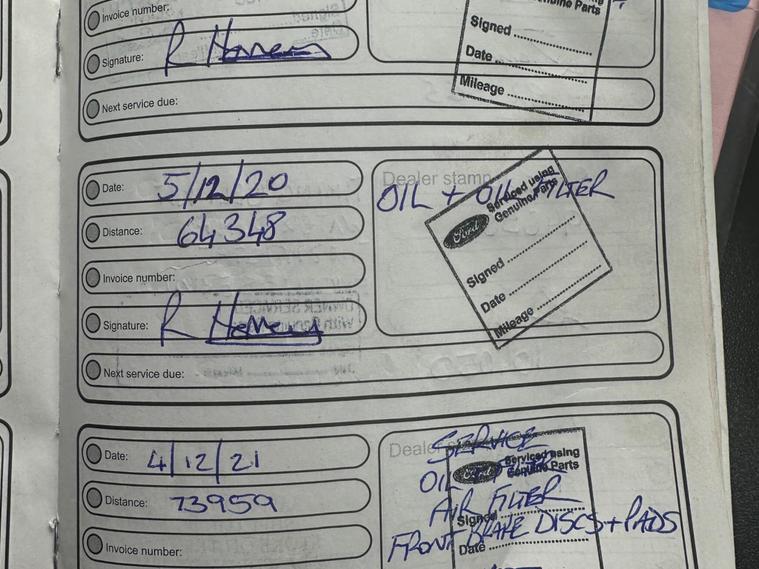 Invoice number:
Genuine Parts
Signature: R
Signed
Date
Mileage
Next service due:
Date: 5/12/20
Dealer stamp
OIL + OIL FILTER
Serviced using
Genuine Parts
Ford
Distance: 64348
Signed
Invoice number:
Date
Signature: R
Mileage
Next service due:
Date: 4/12/21
SERVICE
Ford
Serviced using
Genuine Parts
Distance: 73959
AIR FILTER
Signed
FRONT BRAKE DISCS + PADS
Invoice number:
Date